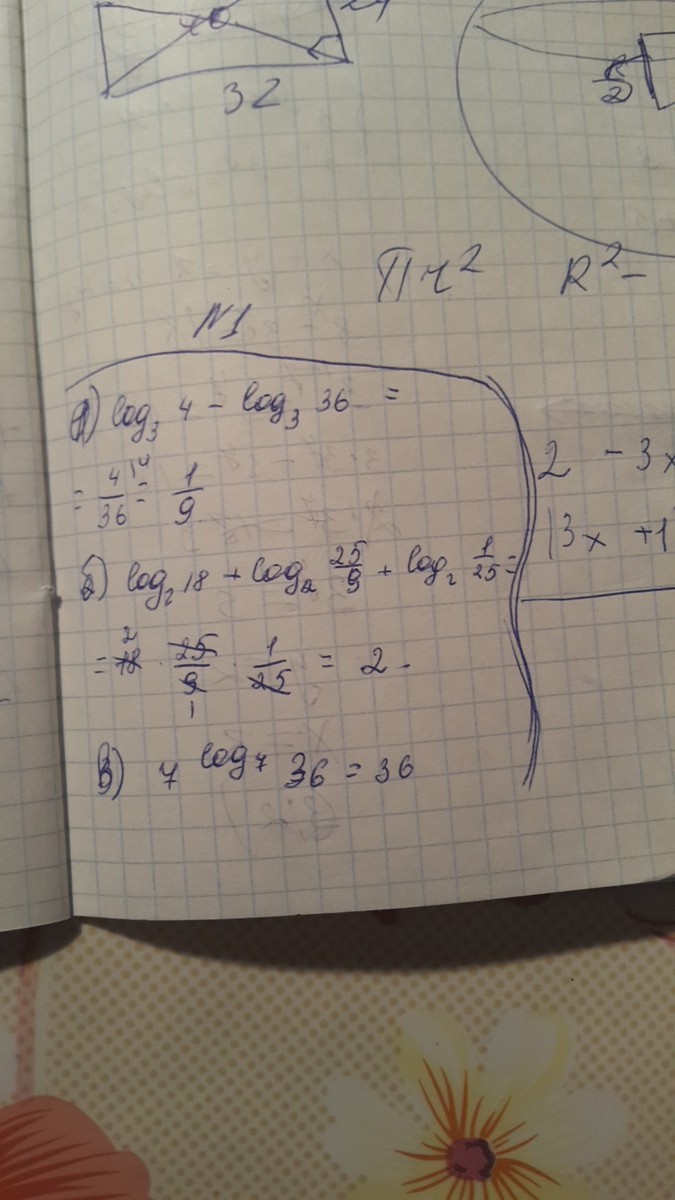 32
Πr² R² -
N1
а) log₃ 4 - log₃ 36 =
= 4/36 = 1/9
б) log₂ 18 + log₂ 25/9 + log₂ 1/25 =
= 18 · 25/9 · 1/25 = 2
2
1
в) 7 log₇ 36 = 36
2 - 3x
3x + 1